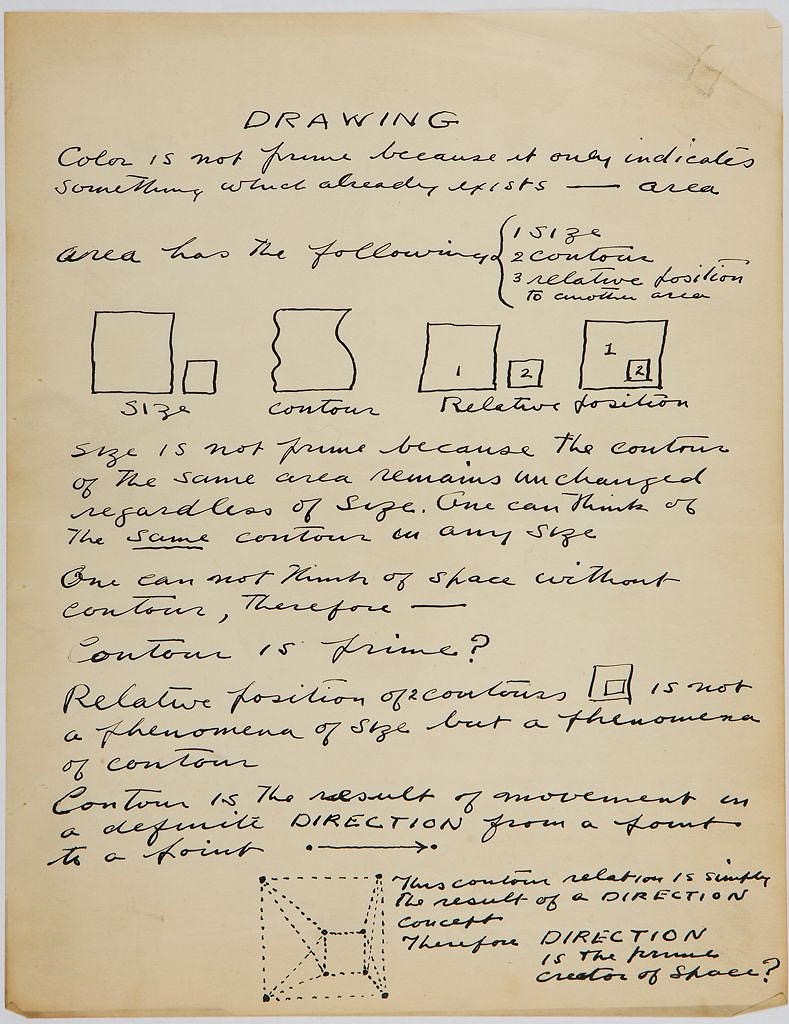 DRAWING
Color is not prime because it only indicates
something which already exists — area
area has the following
1 Size
2 contour
3 relative position
to another area
1
2
1
2
Size
contour
Relative position
Size is not prime because the contour
of the same area remains unchanged
regardless of Size. One can think of
The same contour in any Size
One can not think of space without
contour, Therefore —
Contour is prime?
Relative position of 2 contours is not
a phenomena of Size but a phenomena
of contour
Contour is the result of movement in
a definite DIRECTION from a point
to a point
This contour relation is simply
the result of a DIRECTION
concept
Therefore DIRECTION
is the prime
creator of Space?